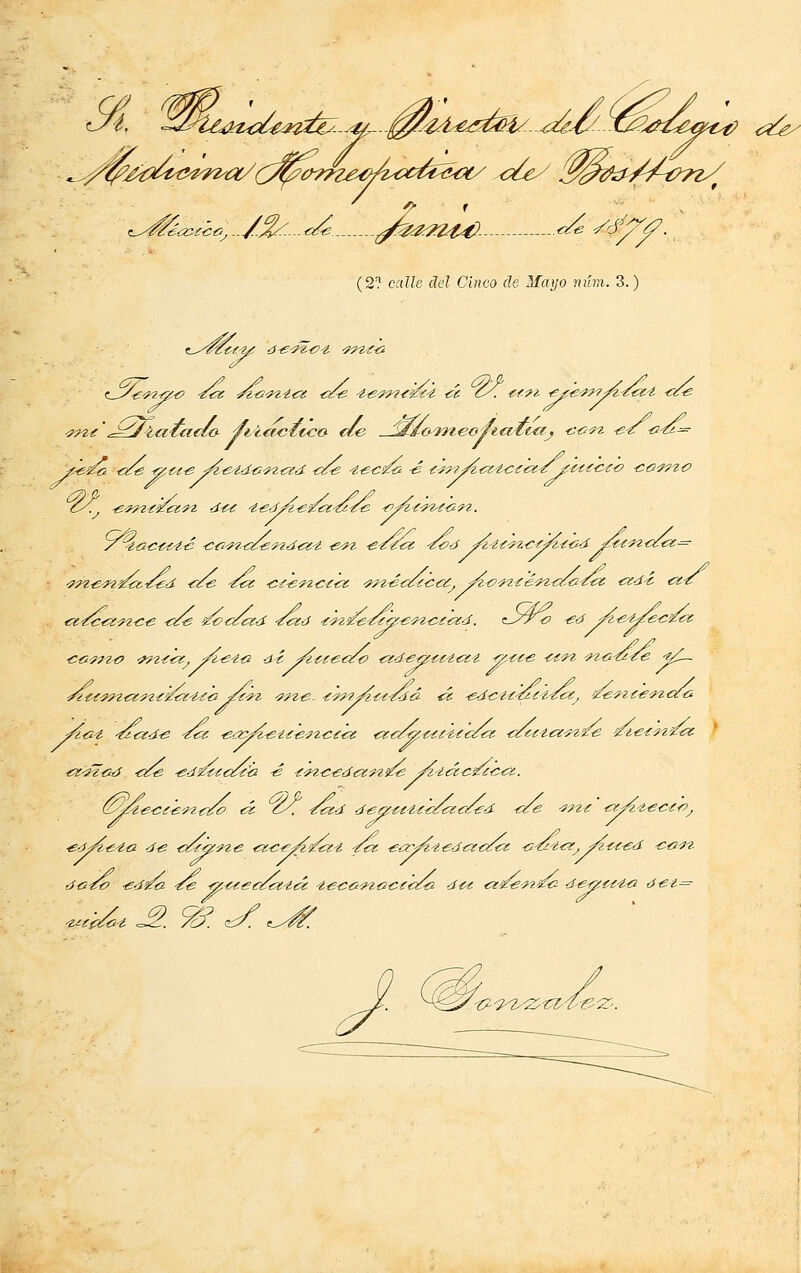 Sr. Presidente y Director del Colegio de
Medicina Homeopatica de Bostton,
México, 12 de Junio de 1879.
(2ª calle del Cinco de Mayo núm. 3.)
Muy señor mio
Tengo la honra de remitir á V. un ejemplar de
mi Tratado práctico de Homeopatía, con el ob=
jeto de que personas de recto é imparcial juicio como
V., emitan su respetable opinion.
Procuré condensar en ella los principios funda=
mentales de la ciencia médica, poniéndola así al
alcance de todas las inteligencias. No es perfecta
como mia, pero sí puedo asegurar que un noble y
humanitario fin me impulsó á escribirla, teniendo
por base la experiencia adquirida durante treinta
años de estudio é incesante práctica.
Ofreciendo á V. las seguridades de mi aprecio,
espero se digne aceptar la expresada obra, pues con
solo esto le quedará reconocido su atento seguro ser=
vidor Q. B. S. M.
J. Gonzalez.